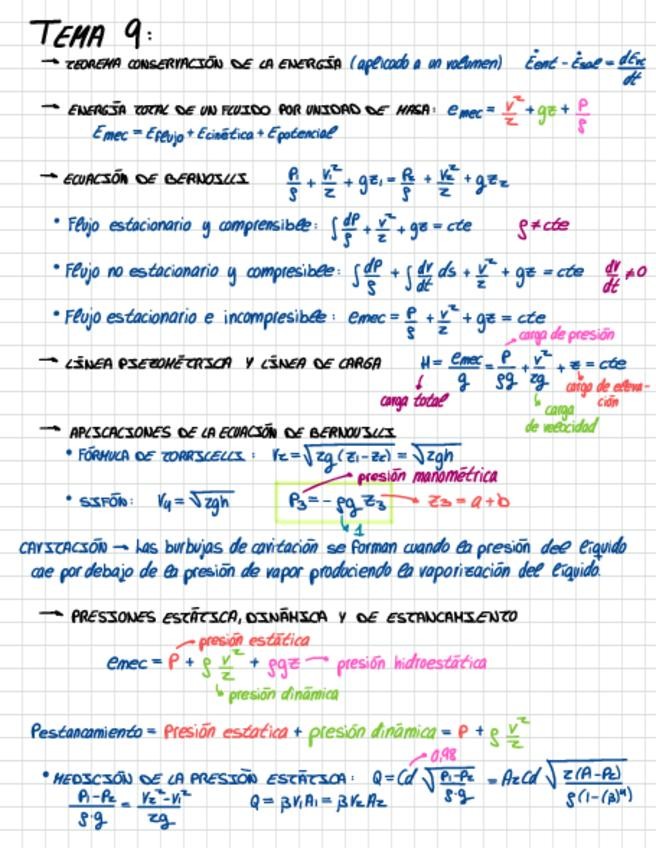 TEMA 9:
→ TEOREMA CONSERVACIÓN DE LA ENERGÍA (aplicado a un volumen) Ėent - Ėsal = dEvc/dt
→ ENERGÍA TOTAL DE UN FLUIDO POR UNIDAD DE MASA: emec = v²/2 + gz + P/ρ
Emec = Eflujo + Ecinética + Epotencial
→ ECUACIÓN DE BERNOILLI P₁/ρ + v₁²/2 + gz₁ = P₂/ρ + v₂²/2 + gz₂
• Flujo estacionario y comprensible: ∫dP/ρ + v²/2 + gz = cte ρ ≠ cte
• Flujo no estacionario y compresible: ∫dP/ρ + ∫dv/dt ds + v²/2 + gz = cte dv/dt ≠ 0
• Flujo estacionario e incompresible: emec = P/ρ + v²/2 + gz = cte
carga de presión
→ LÍNEA PIEZOMÉTRICA Y LÍNEA DE CARGA H = emec/g = P/ρg + v²/2g + z = cte
carga total carga de velocidad carga de elevación
→ APLICACIONES DE LA ECUACIÓN DE BERNOUILLI
• FÓRMULA DE TORRICELLI: V₂ = √2g(z₁-z₂) = √2gh
presión manométrica
• SIFÓN: V₄ = √2gh P₃ = - ρg z₃ → z₃ = a + b
1
CAVITACIÓN → Las burbujas de cavitación se forman cuando la presión del líquido
cae por debajo de la presión de vapor produciendo la vaporización del líquido.
→ PRESIONES ESTÁTICA, DINÁMICA Y DE ESTANCAMIENTO
presión estática
emec = P + ρ v²/2 + ρgz → presión hidroestática
presión dinámica
Pestancamiento = Presión estatica + presión dinámica = P + ρ v²/2
0,98
• MEDICIÓN DE LA PRESIÓN ESTÁTICA: Q = Cd √(P₁-P₂)/(ρ·g) = A₂Cd √2(P₁-P₂)/(ρ(1-(β)⁴))
(P₁-P₂)/(ρ·g) = (V₂²-V₁²)/2g Q = βV₁A₁ = βV₂A₂